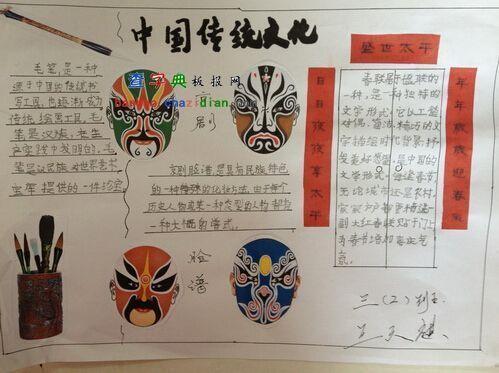 中国传统文化
查字典板报网
毛笔,是一种
源于中国的传统书
写工具,也逐渐成为
传统绘画工具。毛
笔是汉族
京剧
京剧脸谱,是具有民族特色
的一种特殊的化妆方法。由于每个
历史人物或某一种类型的人物都有
一种大概的谱式。
脸谱
盛世太平
日日夜夜享太平
年年岁岁迎春乐
春联
的一种,是一种独特的
文学形式。它以工整
对偶、简洁、精巧的文
字描绘时代背景,抒
发美好愿望,是中国的
文学形式。每逢春节
无论城市还是农村,
家家户户都要
副大红春联贴于门上
为春节增加喜庆气
氛。
三(2)班
王天